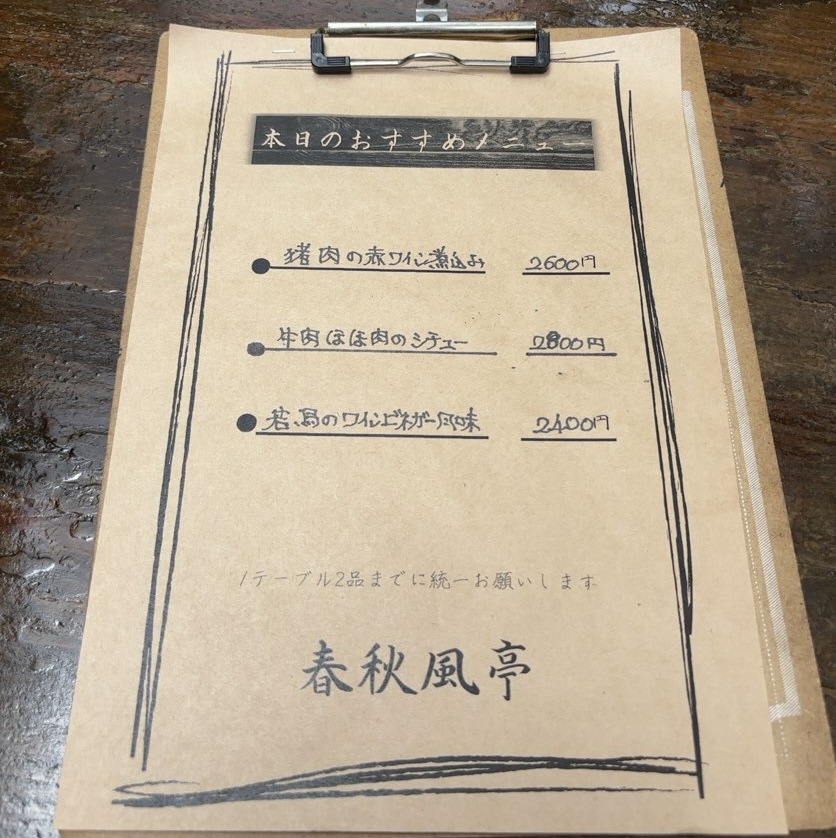 本日のおすすめメニュー
猪肉の赤ワイン煮込み 2600円
牛肉ほほ肉のシチュー 2800円
若鶏のワインビネガー風味 2400円
1テーブル2品までに統一お願いします
春秋風亭